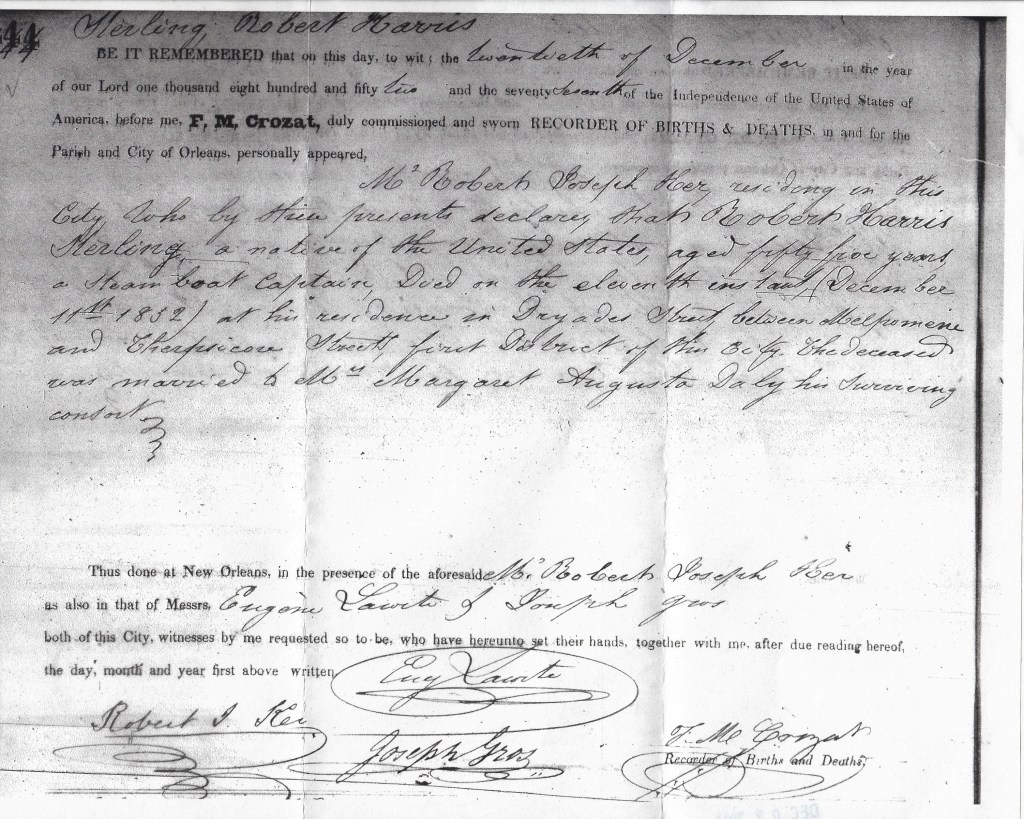 44
Sterling, Robert Harris
BE IT REMEMBERED that on this day, to wit; the twentieth of December in the year
of our Lord one thousand eight hundred and fifty two and the seventy seventh of the Independence of the United States of
America, before me, F. M. Crozat, duly commissioned and sworn RECORDER OF BIRTHS & DEATHS, in and for the
Parish and City of Orleans, personally appeared,
Mr Robert Joseph Ker, residing in this
City, Who by these presents declares, that Robert Harris
Sterling, a native of the United States, aged fifty five years,
a Steam boat Captain, Died on the eleventh instant (December
11th 1852) at his residence in Dryades Street between Melpomene
and Therpsicore Streets, first District of this City. The deceased
was married to Mrs Margaret Augusta Daly his surviving
consort
Thus done at New Orleans, in the presence of the aforesaid Mr Robert Joseph Ker
as also in that of Messrs, Eugène & Joseph Gros
both of this City, witnesses by me requested so to be, who have hereunto set their hands, together with me, after due reading hereof,
the day, month and year first above written
Eug
Robert J. Ker
Joseph Gros
F. M. Crozat
Recorder of Births and Deaths,